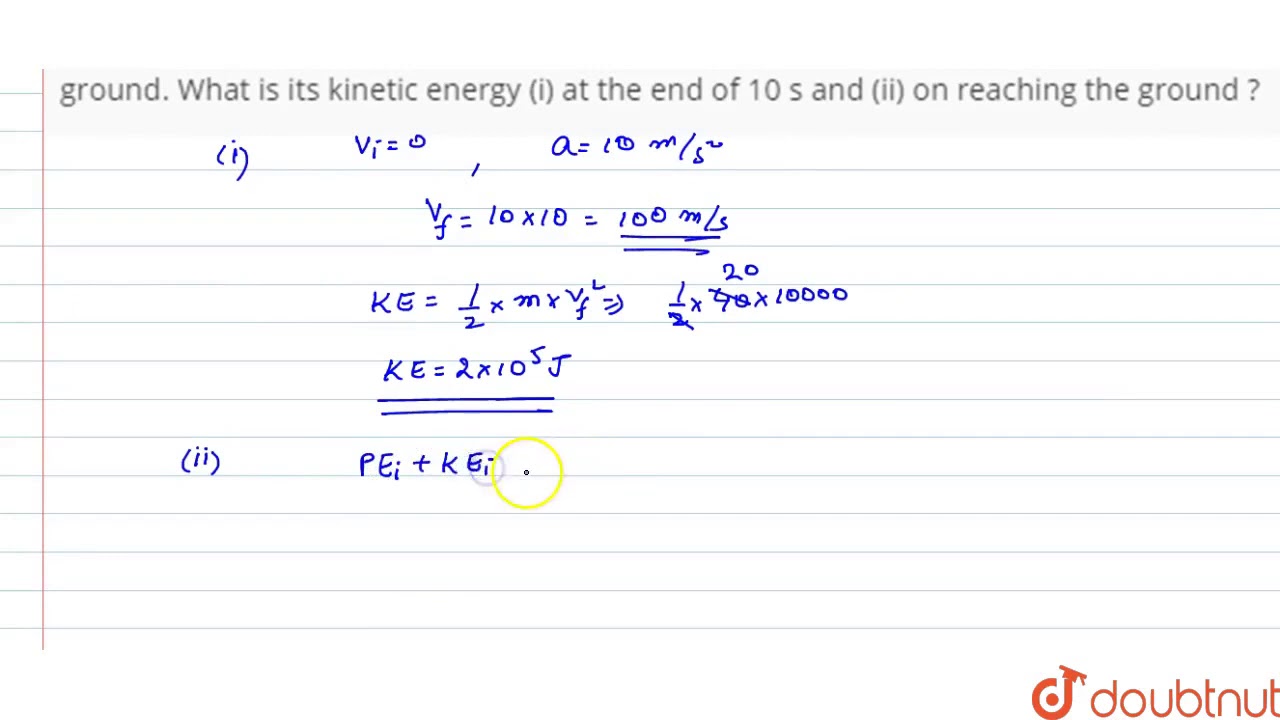 ground. What is its kinetic energy (i) at the end of 10 s and (ii) on reaching the ground ?
(i) Vi = 0 , a = 10 m/s²
Vf = 10 × 10 = 100 m/s
20
KE = 1/2 × m × Vf² ⇒ 1/2 × 40 × 10000
KE = 2 × 10⁵ J
(ii) PEi + KEi
doubtnut